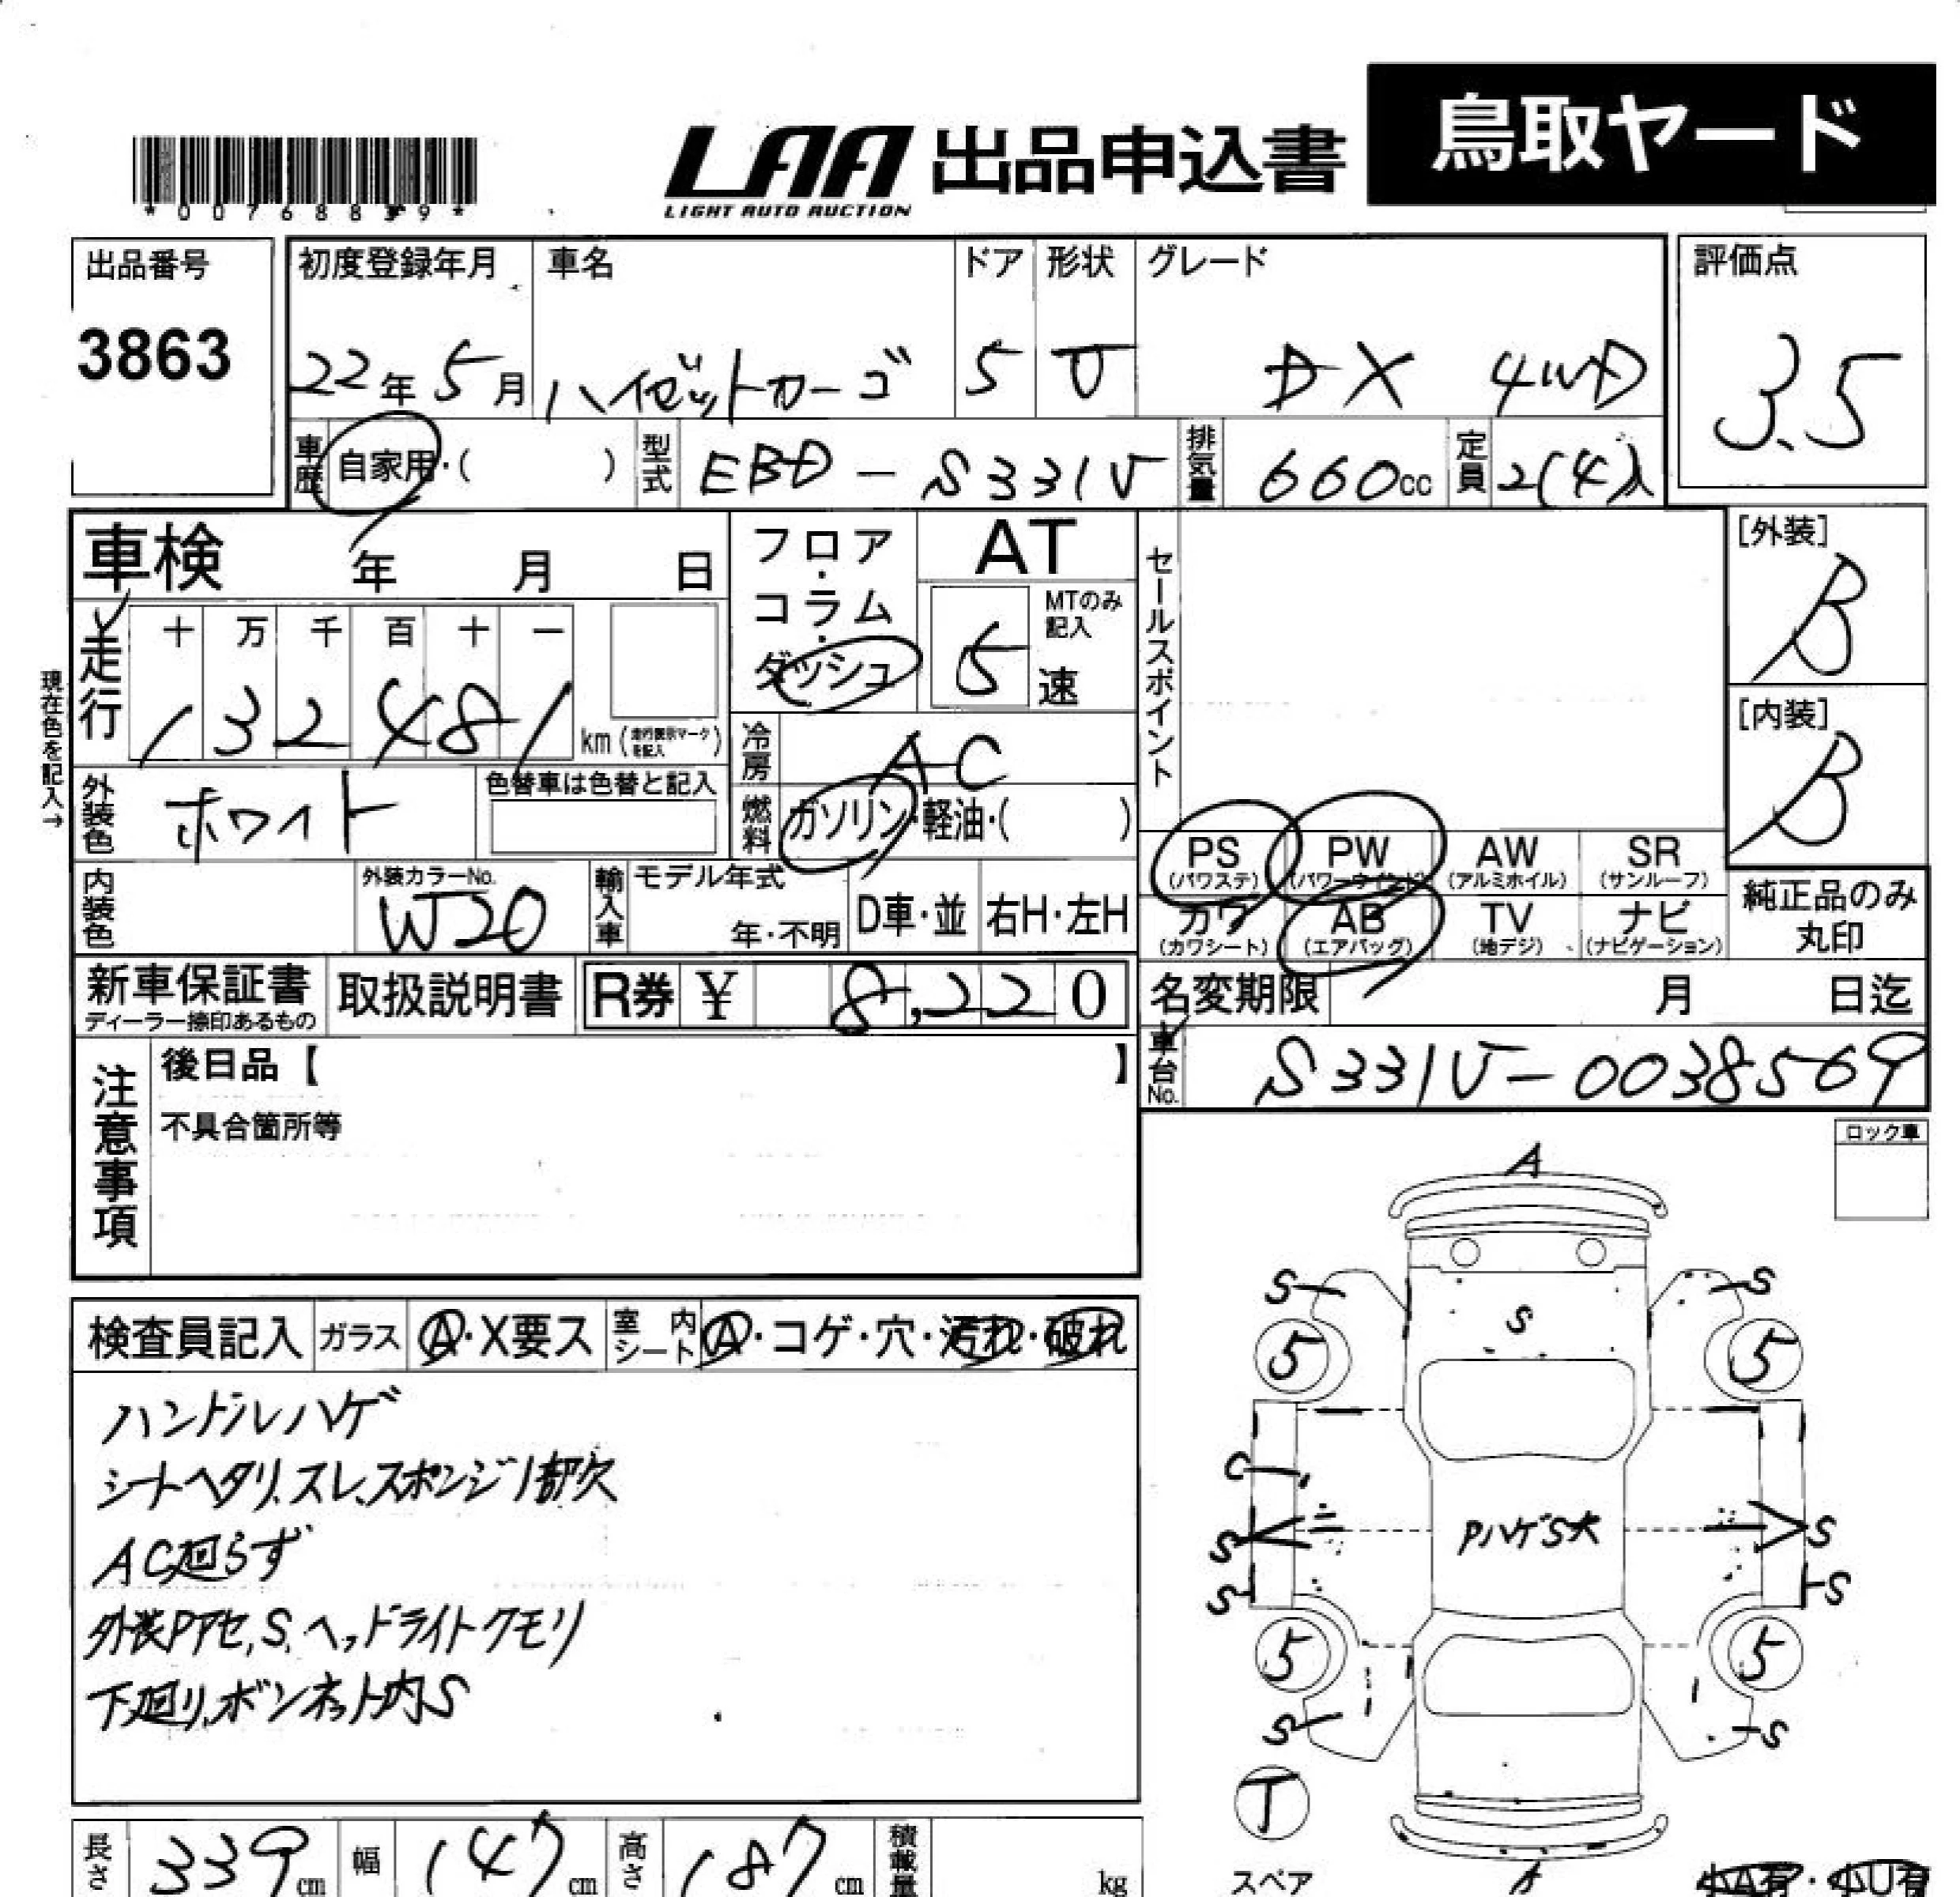 鳥取ヤード
LAA 出品申込書
LIGHT AUTO AUCTION
*00768839*
出品番号 初度登録年月 車名 ドア 形状 グレード 評価点
3863 22年5月 ハイゼットカーゴ 5 V DX 4WD 3.5
車歴 自家用・( ) 型式 EBD-S331V 排気量 660cc 定員 2(4)人
車検 年 月 日
フロア・コラム・ダッシュ
AT
5速 MTのみ記入
セールスポイント
[外装]
B
[内装]
B
現在色を記入→
走行 十 万 千 百 十 一
132481 km (走行表示マークを記入)
冷房 AC
外装色 ホワイト 色替車は色替と記入
燃料 ガソリン・軽油・( )
PS PW AW SR
(パワステ) (パワーウインド) (アルミホイル) (サンルーフ)
カワ AB TV ナビ
(カワシート) (エアバッグ) (地デジ) (ナビゲーション)
純正品のみ
丸印
内装色 外装カラーNo. W20 輸入車 モデル年式 年・不明 D車・並 右H・左H
新車保証書 取扱説明書 R券 ¥ 8,220
ディーラー捺印あるもの
名変期限 月 日迄
車台No. S331V-0038569
注意事項 後日品【 】
不具合箇所等
ロック車
検査員記入 ガラス A・X要ス 室内シート A・コゲ・穴・汚れ・破れ
ハンドルハゲ
シートヘタリ、スレ、スポンジ1部欠
AC廻らず
外装Pアセ、S、ヘッドライトクモリ
下廻り、ボンネット内S
A
S S S
5 5
C
PハゲS大
S S
S S
5 5
S S
T
スペア
長さ 339cm 幅 147cm 高さ 187cm 積載量 kg
小A有・小U有